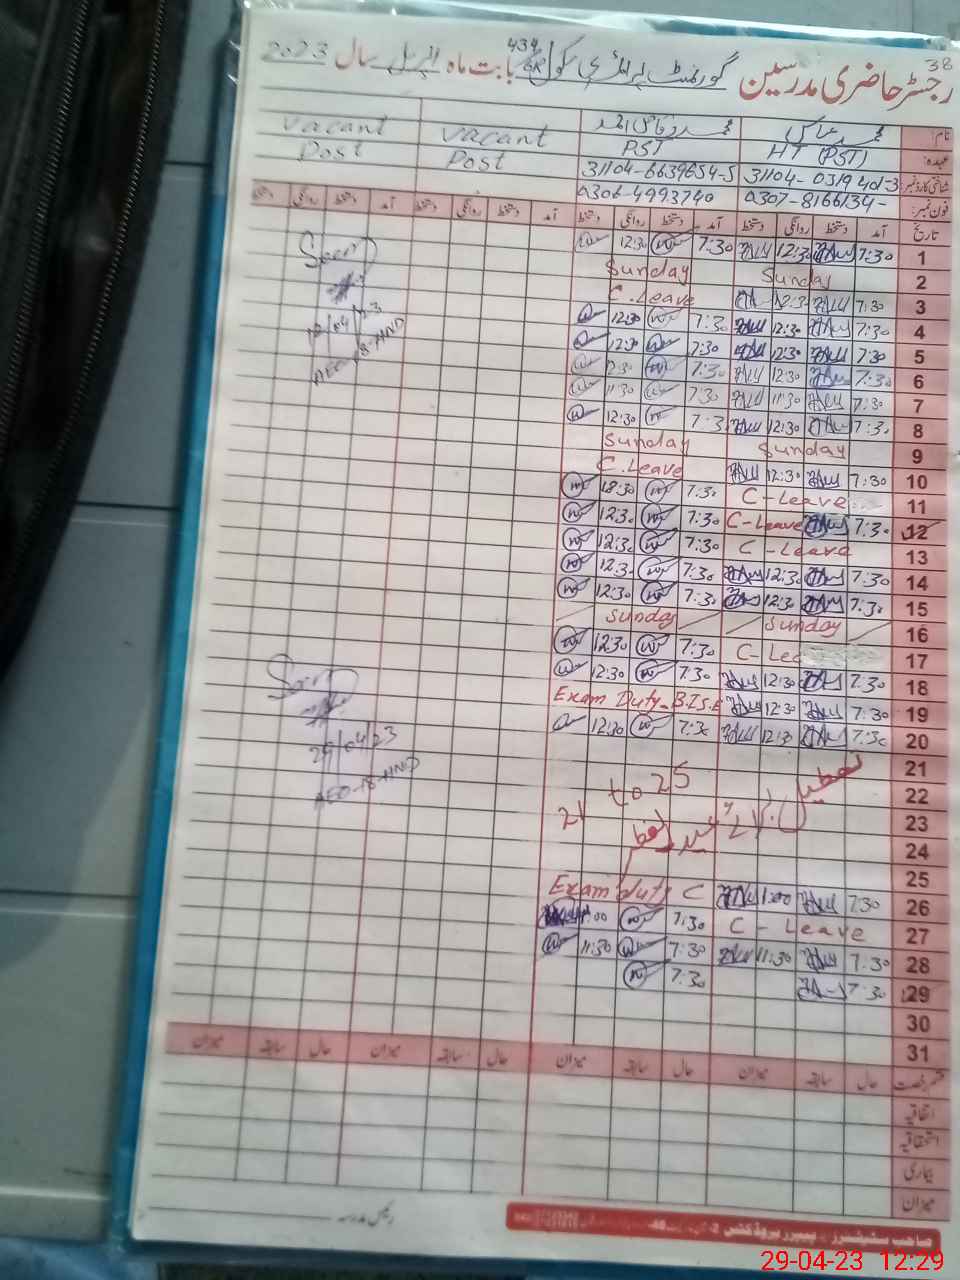 38
رجسٹر حاضری مدرسین گورنمنٹ پرائمری سکول 434 6R بابت ماہ اپریل سال 2023
نام: محمد عباس vacant vacant
عہدہ: HT (PST) PST Post Post
شناختی کارڈ نمبر: 31104-0319401-3 31104-6639654-5
فون نمبر: 0307-8166134- 0306-4993740
تاریخ آمد دستخط روانگی دستخط آمد دستخط روانگی دستخط آمد دستخط روانگی دستخط آمد دستخط روانگی دستخط
1 7:30 12:30 7:30 12:30
2 Sunday Sunday
3 7:30 12:30 C.Leave
4 7:30 12:30 7:30 12:30
5 7:30 12:30 7:30 12:30
6 7:30 12:30 7:30 12:30
7 7:30 11:30 7:30 11:30
8 7:30 12:30 7:30 12:30
9 Sunday Sunday
10 7:30 12:30 C.Leave
11 C-Leave 7:30 12:30
12 7:30 C-Leave 7:30 12:30
13 C-Leave 7:30 12:30
14 7:30 12:30 7:30 12:30
15 7:30 12:30 7:30 12:30
16 Sunday Sunday
17 C-Lea 7:30 12:30
18 7:30 12:30 7:30 12:30
19 7:30 12:30 Exam Duty B.I.S.E
20 7:30 12:30 7:30 12:30
21
22 21 to 25
23 تعطیل برائے عید الفطر
24
25
26 7:30 1:00 Exam duty C
27 C-Leave 7:30 1:00
28 7:30 11:30 7:30 11:30
29 7:30 7:30
30
31
قسم رخصت حال سابقہ میزان حال سابقہ میزان حال سابقہ میزان حال سابقہ میزان
اتفاقیہ
استحقاقیہ
بیماری
میزان
رئیس مدرسہ
12/04/23
AEO-18-HND
29/04/23
AEO-18-HND
صاحب سٹیشنرز
29-04-23 12:29